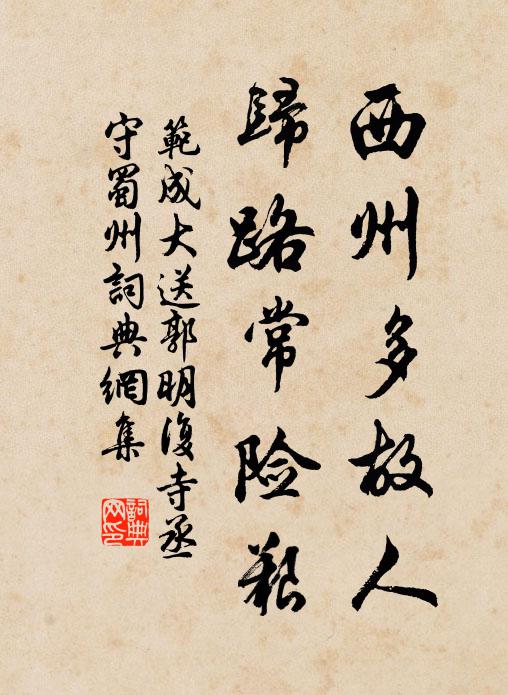 西州多故人
歸路常险艱
範成大送郭明復寺丞
守蜀州詞典網集
詞典网印